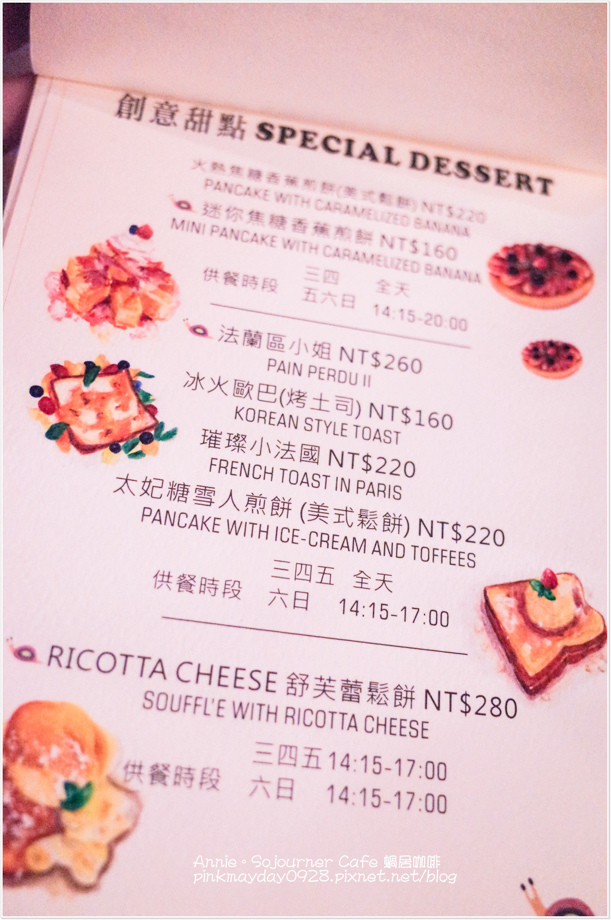 創意甜點 SPECIAL DESSERT
火熱焦糖香蕉煎餅(美式鬆餅) NT$220
PANCAKE WITH CARAMELIZED BANANA
迷你焦糖香蕉煎餅 NT$160
MINI PANCAKE WITH CARAMELIZED BANANA
供餐時段 三四 全天
五六日 14:15-20:00
法蘭區小姐 NT$260
PAIN PERDU II
冰火歐巴(烤土司) NT$160
KOREAN STYLE TOAST
璀璨小法國 NT$220
FRENCH TOAST IN PARIS
太妃糖雪人煎餅 (美式鬆餅) NT$220
PANCAKE WITH ICE-CREAM AND TOFFEES
供餐時段 三四五 全天
六日 14:15-17:00
RICOTTA CHEESE 舒芙蕾鬆餅 NT$280
SOUFFL'E WITH RICOTTA CHEESE
供餐時段 三四五 14:15-17:00
六日 14:15-17:00
Annie。Sojourner Cafe 蝸居咖啡
pinkmayday0928.pixnet.net/blog